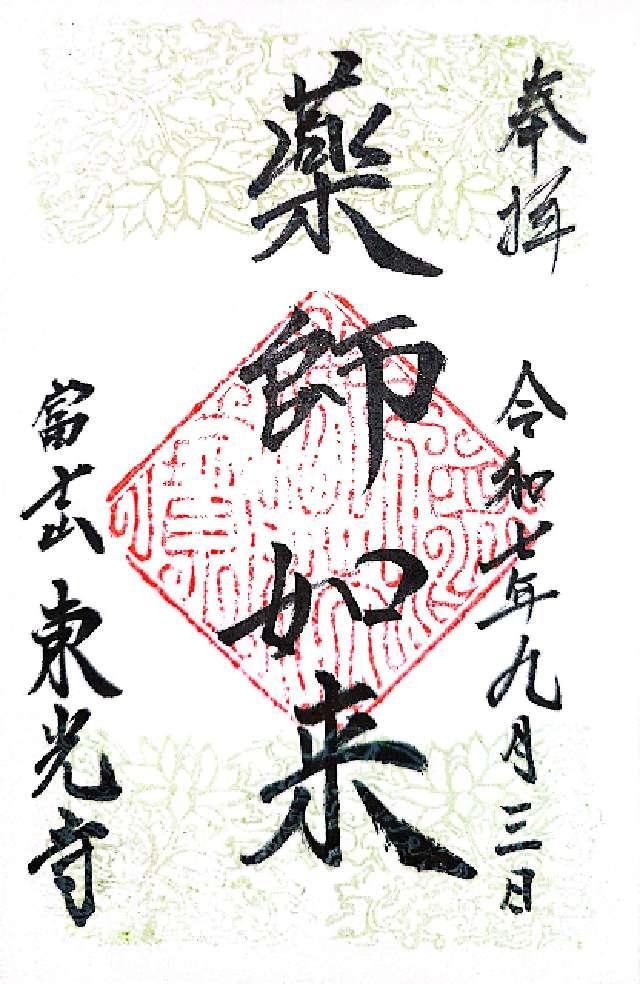 奉拝
令和七年九月三日
薬師如来
富士山 東光寺